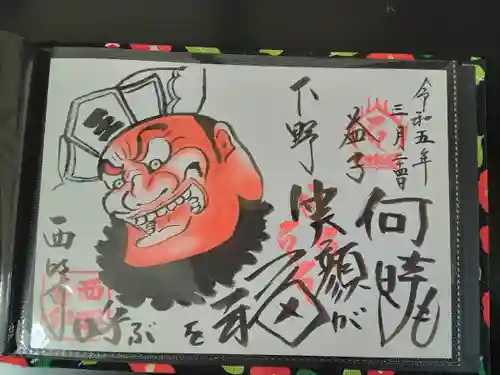 令和五年
三月二四日
下野
益子
何時も
笑顔が
福を
呼ぶ
西明寺
王